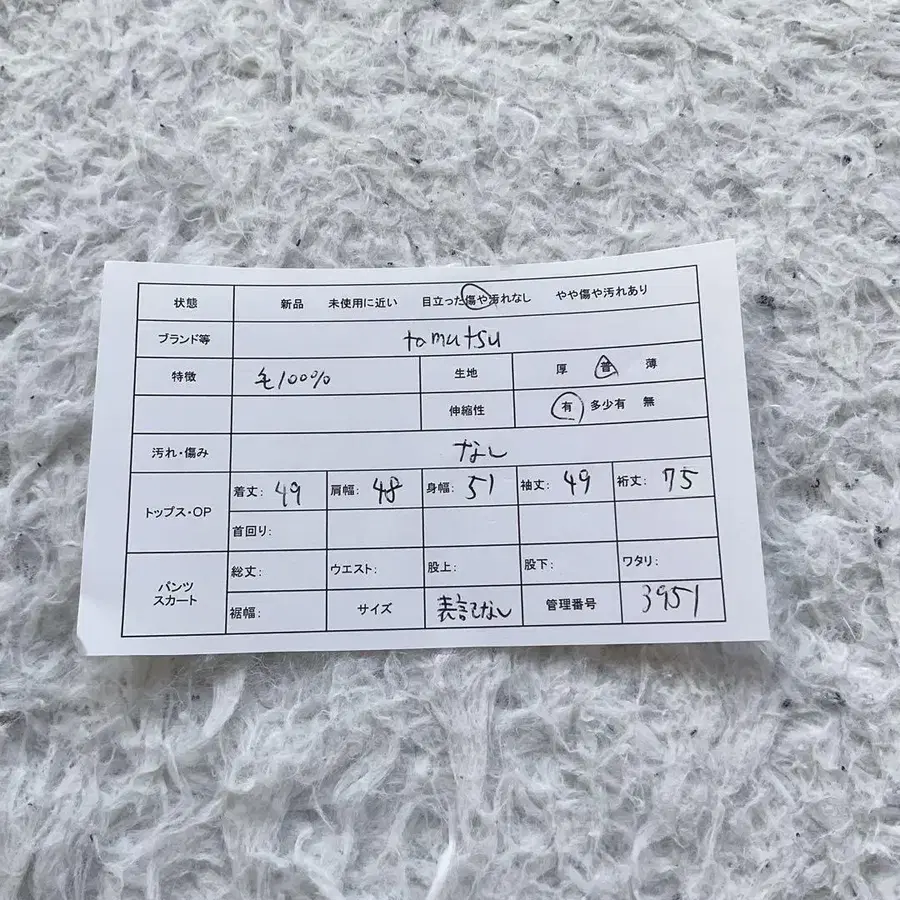 状態 新品 未使用に近い 目立った傷や汚れなし やや傷や汚れあり
ブランド等 tamutsu
特徴 毛100% 生地 厚 普 薄
伸縮性 有 多少有 無
汚れ・傷み なし
トップス・OP 着丈: 49 肩幅: 48 身幅: 51 袖丈: 49 裄丈: 75
首回り:
パンツ スカート 総丈: ウエスト: 股上: 股下: ワタリ:
裾幅: サイズ 表記なし 管理番号 3951